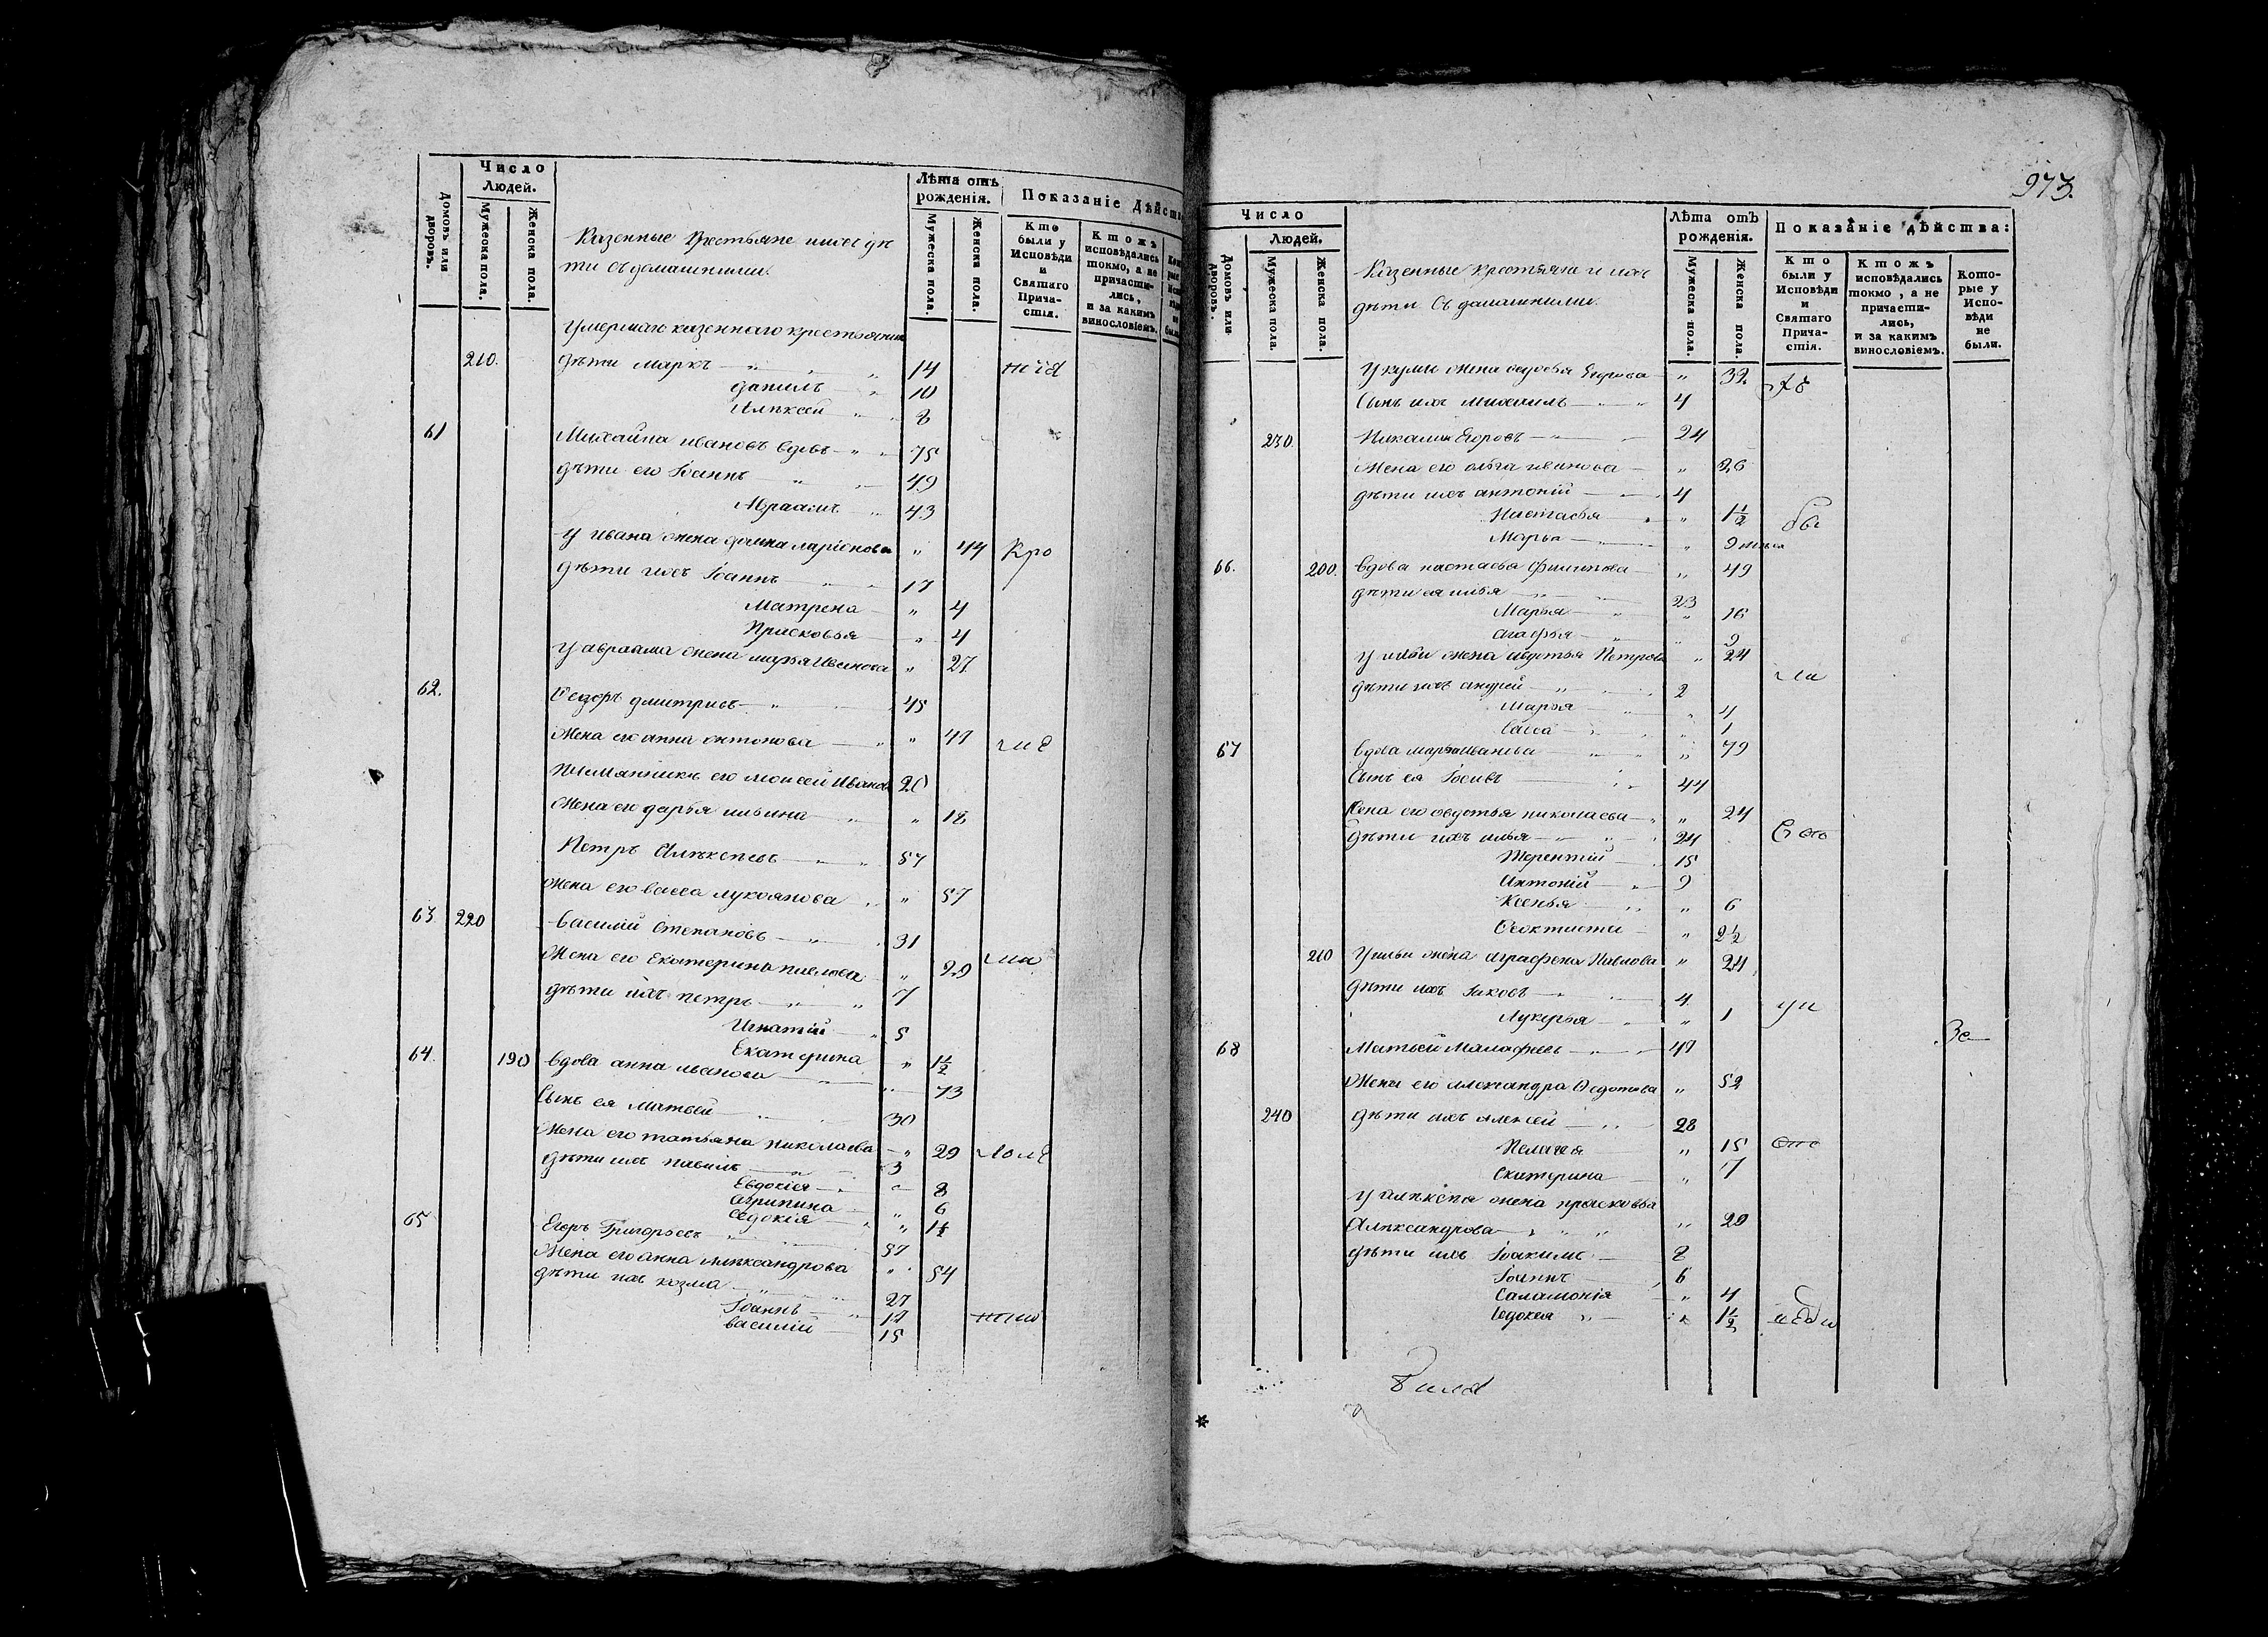 Число
Людей.
Домовъ или дворовъ.
Мужеска пола.
Женска пола.
Лѣта отъ рожденія.
Мужеска пола.
Женска пола.
Показаніе Дѣйств
Кто были у Исповѣди и Святаго Причастія.
Ктожъ исповѣдались токмо, а не причастились, и за какимъ винословіемъ.
Казенные Крестьяне ихъ дѣ
ти съ домашними.
Умершаго казеннаго крестьянина
210. дѣти Маркъ 14
Данилъ 10
Алѣксей 8
61 Михайла Ивановъ вдовъ 75
дѣти его Іоаннъ 49
Авраамъ 43
У Ивана жена Ларіонова " 44 Кро
дѣти ихъ Іоаннъ 17
Матрена " 4
Прасковья " 4
У Авраама жена Марья Иванова " 27
62. Ѳедоръ Дмитріевъ 45
Жена его Анна Антонова " 47
Племянникъ его Моисей Иванов 20
Жена его Дарья Ильина " 18
Петръ Алѣксѣевъ 57
Жена его Васса Лукоянова " 57
63 220 Василій Степановъ 31
Жена его Екатерина Павлова " 29
дѣти ихъ Петръ 7
Игнатій 5
Екатерина " 1½
64. 190 Вдова Анна Иванова " 73
Сынъ ея Матвей 30
Жена его Татьяна Николаева " 29
дѣти ихъ Павилъ 3
Евдокія " 8
Агрипина " 6
Авдокія " 1½
65 Егоръ Григорьевъ 57
Жена его Анна Алѣксандрова " 54
дѣти ихъ Козма 27
Іоаннъ 17
Василій 15
973.
Число
Людей.
Домовъ или дворовъ.
Мужеска пола.
Женска пола.
Лѣта отъ рожденія.
Мужеска пола.
Женска пола.
Показаніе дѣйства:
Кто были у Исповѣди и Святаго Причастія.
Ктожъ исповѣдались токмо, а не причастились, и за какимъ винословіемъ.
Которые у Исповѣди не были.
Казенные крестьяна и ихъ
дѣти съ домашними.
У Кузмы жена Ѳедосья Егорова " 32
Сынъ ихъ Михаилъ 4
230. Егоровъ 24
Жена его Ольга Иванова " 26
дѣти ихъ Антоній 4
Настасья " 1½ бы
Марья "
66. 200. Вдова Настасья Филипова " 49
дѣти ея Илья 23
Марья " 16
Агафья " 9
У Ильи жена Авдотья Петрова " 24
дѣти ихъ Андрей 2
Марья " 4
Васса " 1
67 Вдова Марья Иванова " 79
Сынъ ея Іосивъ 44
Жена его Овдотья Николаева " 24
дѣти ихъ Илья 24
Терентій 15
Антоній 9
Ксенья " 6
Ѳеоктиста " 2½
210 У Ильи жена Аграфена Павлова " 24
дѣти ихъ Іаковъ 4
Лукерья " 1
68 Матвей Малафеевъ 47
Жена его Александра Ѳедотова " 52
240 дѣти ихъ Алексей 28
Пелагея " 15
Екатерина " 7
У Алѣксѣя жена Прасковья
Алѣксандрова " 29
дѣти ихъ Іоакимъ 8
Іоаннъ 6
Саламонія " 4
Авдокея " 1½